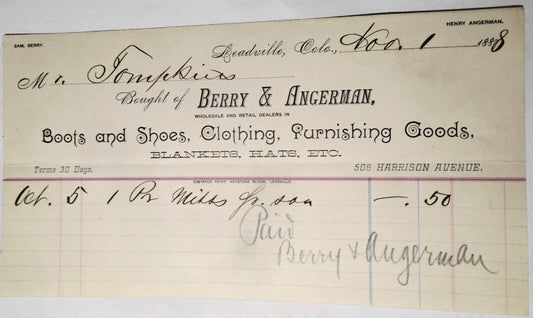 SAM. BERRY. HENRY ANGERMAN.
Leadville, Colo., Nov. 1 1888
Mr. Tompkins
Bought of BERRY & ANGERMAN,
WHOLESALE AND RETAIL DEALERS IN
Boots and Shoes, Clothing, Furnishing Goods,
BLANKETS, HATS, ETC.
Terms 30 Days. 508 HARRISON AVENUE.
DISPATCH PRINT, KEYSTONE BLOCK, LEADVILLE.
Oct. 5 1 Pr Mitts for son —. 50
Paid
Berry & Angerman